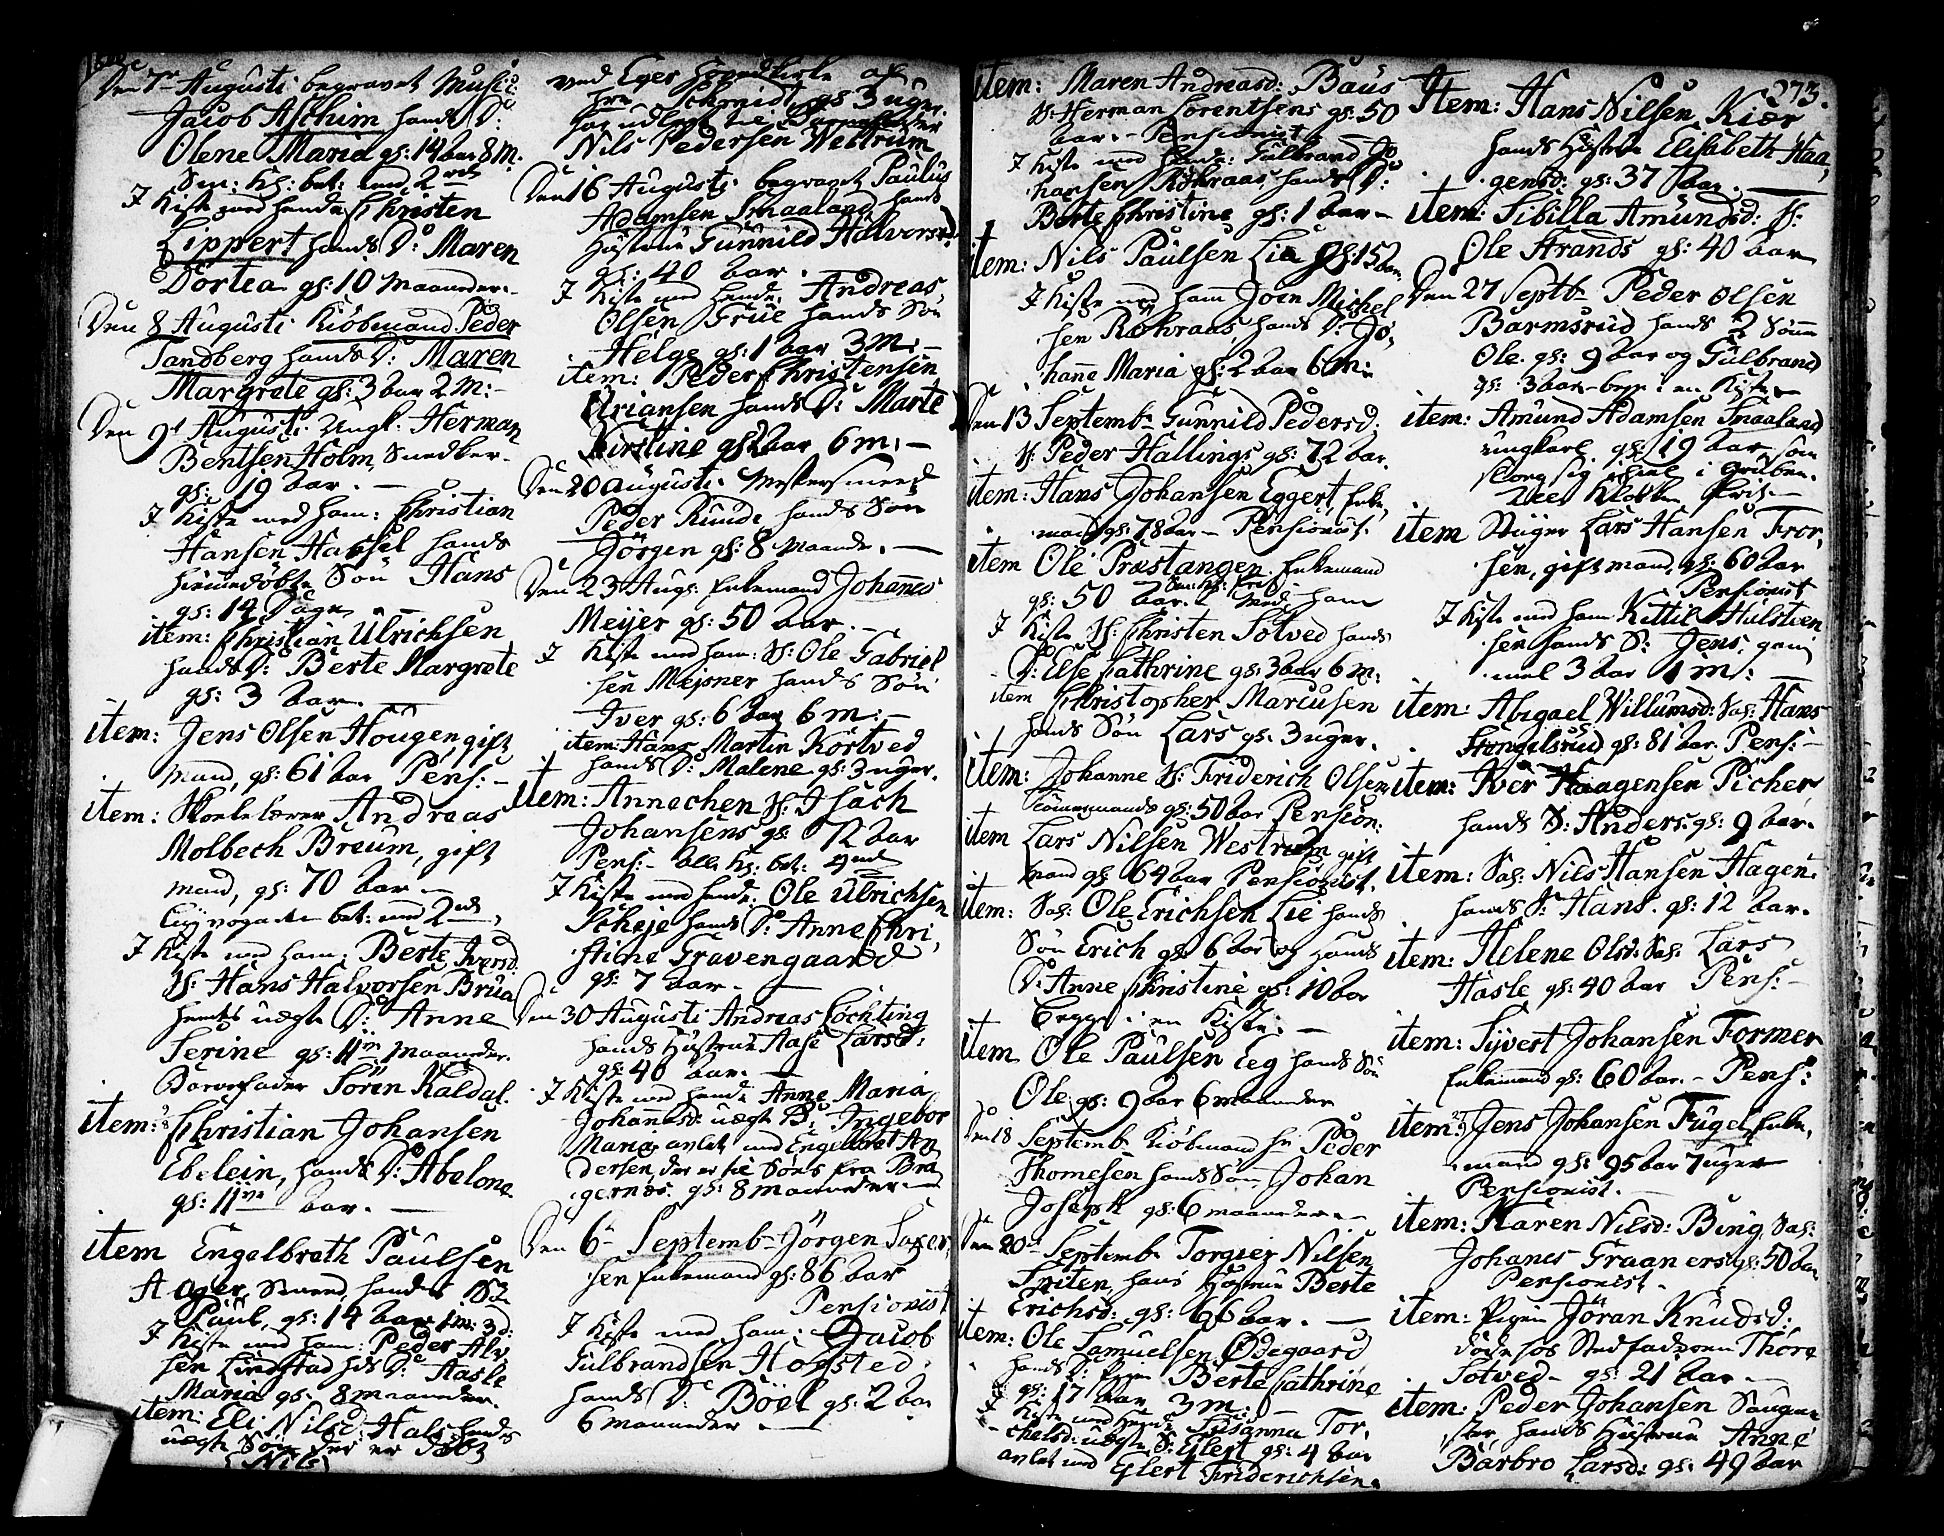 Den 7de Augusti begravet Musici
Jacob Aschim hands D:
Olene Maria gl: 14 aar 8 M.
Sm: Kl: bet: med 2 rd
I Kiste med hende Christen
Lippert hands D: Maren
Dortea gl: 10 Maaneder.
Den 8 Augusti Kiöbmand Peder
Tandberg hands D: Maren
Margrete gl: 3 aar 2 M:-
Den 9de Augusti Ungk: Herman
Bentsen Holm, Snedker.
gl: 19 aar. -
I Kiste med ham: Christian
Hansen Hassel hands
hiemedöbte Sön Hans
gl: 14 Dage
item: Christian Ulrichsen
hands D: Berte Margrete
gl: 3 aar.
item: Jens Olsen Hougen, gift
mand, gl: 61 aar Pens:-
item: Skoelelærer Andreas
Molbech Breum, gift
mand, gl: 70 aar -
bet: med 2 rd
I Kiste med ham: Berte Iversd:
H: Hans Halvorsen Brua
hendes uægte D: Anne
Serine gl: 11 Maaneder.
Barnefader Sören Kaldal.
item: Christian Johansen
Ebelein, hands D: Abelone
gl: 11 aar. -
item Engelbreth Paulsen
Ager, Smed, hands S:
Paul, gl: 14 aar 1 m: 3 d:
I Kiste med ham: Peder Alv
sen Lindstad hds D: Aasle
Maria gl: 8 maaneder.
item: Eli Nilsd: Hals hends
uægte Sön der er döbt
(Nils)
ved Eger Hovedkirke af
Hr: Schmidt, gl: 3 uger.
har udlagt til Barnefader
Nils Pedersen Westrum
Den 16 Augusti begravet Paulus
Adamsen Smaaland hands
Hustrue Gunnild Halversd:
gl: 40 aar.
I Kiste med hende: Andreas
Olsen Frue hands Sön
Helge gl: 1 aar 3 M:-
item: Peder Christensen
Ariansen hands D: Marte
Kirstine gl: 2 aar 6 m:-
Den 20 Augusti. Mestersmed
Peder Ruud: hands Sön
Jörgen gl: 8 Maande. -
Den 23 Aug: Enkemand Johannes
Meijer gl: 50 aar. -
I Kiste med ham: H: Ole Gabriel
sen Mejsner hands Sön
Iver gl: 6 aar 6 m:-
item: Hans Martin Körtved
hands D: Malene gl: 3 uger.
item: Annechen H: Isach
Johansens gl: 72 aar
Pens:- alle Kl: bet: 4
I Kiste med hende: Ole Ulrichsen
Scheje hands D: Anne Chri,
stine Gravengaard
gl: 7 aar. -
Den 30 Augusti Andreas Lochting
hands Hustrue Aase Larsd:
gl: 46 aar. -
I Kiste med hende Anne Maria
Johannesd: uægte B: Ingebor
Maria avlet med Engelbret An
dersen, der er til Söes fra Bra
gernæs. gl: 8 maaneder -
Den 6te Septemb: Jörgen Saxer,
sen Enkemand gl: 86 aar
Pensionist
I Kiste med ham: Jacob
Gulbrandsen Hogsted
hands D: Böel gl: 2 aar
6 maaneder. -
item: Maren Andreasd: Baus
H: Herman Lorentsens gl: 50
aar. - Pensionist
I Kiste med hende: Gulbrand Jo
hansen Rohraas, hands D:
Berte Christine gl: 1 aar -
item: Nils Paulsen Lie gl: 52 aar.
I Kiste med ham Joen Michel
sen Rohraas, hands D: Jo,
hanne Maria gl: 2 aar 6 M:
Den 13 Septemb: Gunnild Pedersd:
H: Peder Hallings gl: 72 aar.
item: Hans Johansen Eggert, Enke,
mand gl: 78 aar - Pensionist.
item Ole Præstangen. Enkemand
gl: 50 aar. Sm: Kl: fri Med ham
I Kiste H: Christen Sotved hands
D: Else Cathrine gl: 3 aar 6 m:
item Christopher Marcusen
hands Sön Lars gl: 3 uger.
item: Johanne H: Friderich Olsen
Tömmermands gl: 50 aar Pension:
item Lars Nilsen Westrum gift
mand gl: 64 aar Pensionist.
item: Sal: Ole Erichsen Lie hands
Sön Erich gl: 6 aar og hands
D: Anne Christine gl: 10 aar
begge i en Kiste: -
item Ole Paulsen Eeg hands Sön
Ole gl: 9 aar 6 maaneder
Den 18 Septemb: Kiöbmand Hr: Peder
Thomesen hands Sön Johan
Joseph gl: 6 maaneder.-
Den 20de Septemb: Torgier Nilsen
Sniten, hans Hustrue Berte
Erichsd: gl: 66 aar. -
item: Ole Samuelsen Ødegaard
hands D: Pigen Berte Cathrine
gl: 17 aar 3 m: -
I Kiste med hende Susanna Tor,
chelsd: uægte S: Glert gl: 4 aar
avlet med Glert Friderichsen.
273.
Item: Hans Nilsen Kiær
hands Hustrue Elisabeth Haa,
gensd: gl: 37 aar. -
item: Sibilla Amundsd: H:
Ole Strands gl: 40 aar
Den 27 Septb: Peder Olsen
Barmsrud hands 2 Sönner
Ole gl: 9 aar og Gulbrand
gl: 3 aar - begr: i en Kiste -
item: Amund Adamsen Smaaland
ungkarl gl: 19 aar som
slog sig ihiel i Gruben.
Alle Klokker fri -
item Stiiger Lars Hansen Fror,
sen, gift mand, gl: 60 aar
Pensionist
I Kiste med ham Kittil Halstven
sen hands S: Jens, gam
mel 3 aar 1 m: -
item: Abigael Willumsd: Sal: Hans
Stengelsrud gl: 81 aar Pens:-
item: Iver Haagensen Picher
hands S: Anders gl: 9 aar.
item: Sal: Nils Hansen Hagen
hands S: Hans. gl: 12 aar.
item: Helene Olsd: Sal: Lars
Hasle gl: 40 aar Pens:-
item: Sijvert Johansen Former
Enkemand gl: 60 aar. - Pens:
item: Jens Johansen Fugel, Enke,
mand gl: 95 aar 7 uger
Pensionist. -
item: Karen Nilsd: Bing Sal:
Johanes Graaners gl: 50 aar
Pensionist.
item: Pigen Jöran Knudsd:
döde hos Stedfaderen Thore
Sotved - gl: 21 aar -
item: Peder Johansen Saugme
ster, hands Hustrue Anne
Barbro Larsd: gl: 49 aar